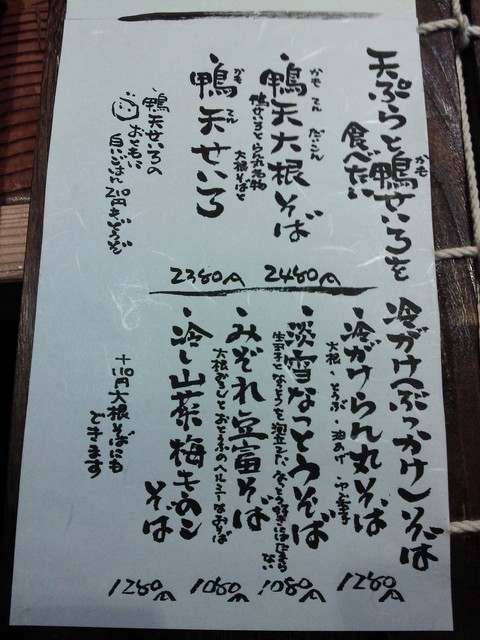 天ぷらと鴨せいろを
かも
食べたい
・鴨天大根そば
かも てん だいこん
鴨せいろとらん丸名物
大根そばと
2480円
・鴨天せいろ
かも てん
2380円
・鴨天せいろの
おともに
白いごはん
どうぞ
冷がけ(ぶっかけ)そば
・冷がけらん丸そば
大根・とうふ・油あげ・
1280円
・淡雪なっとうそば
生玉子となっとうを泡立てた
1080円
・みぞれ豆富そば
大根おろしとおとうふのヘルシーなおそば
1080円
・冷し山菜梅きのこ
そば
1280円
+110円大根そばにも
できます